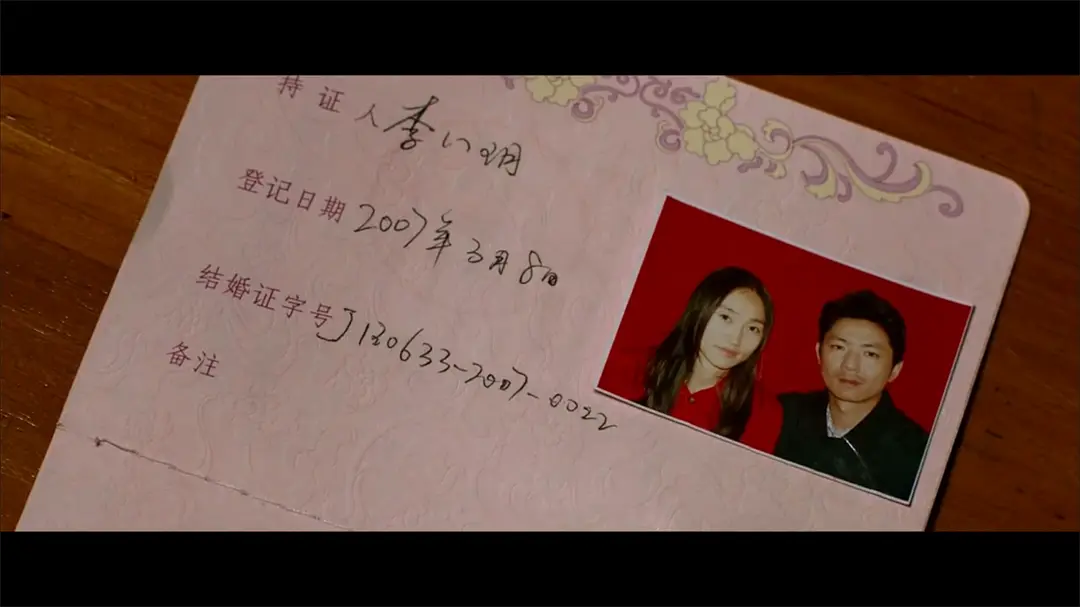 持证人 李小玥
登记日期 2007年3月8日
结婚证字号 J130633-2007-0022
备注